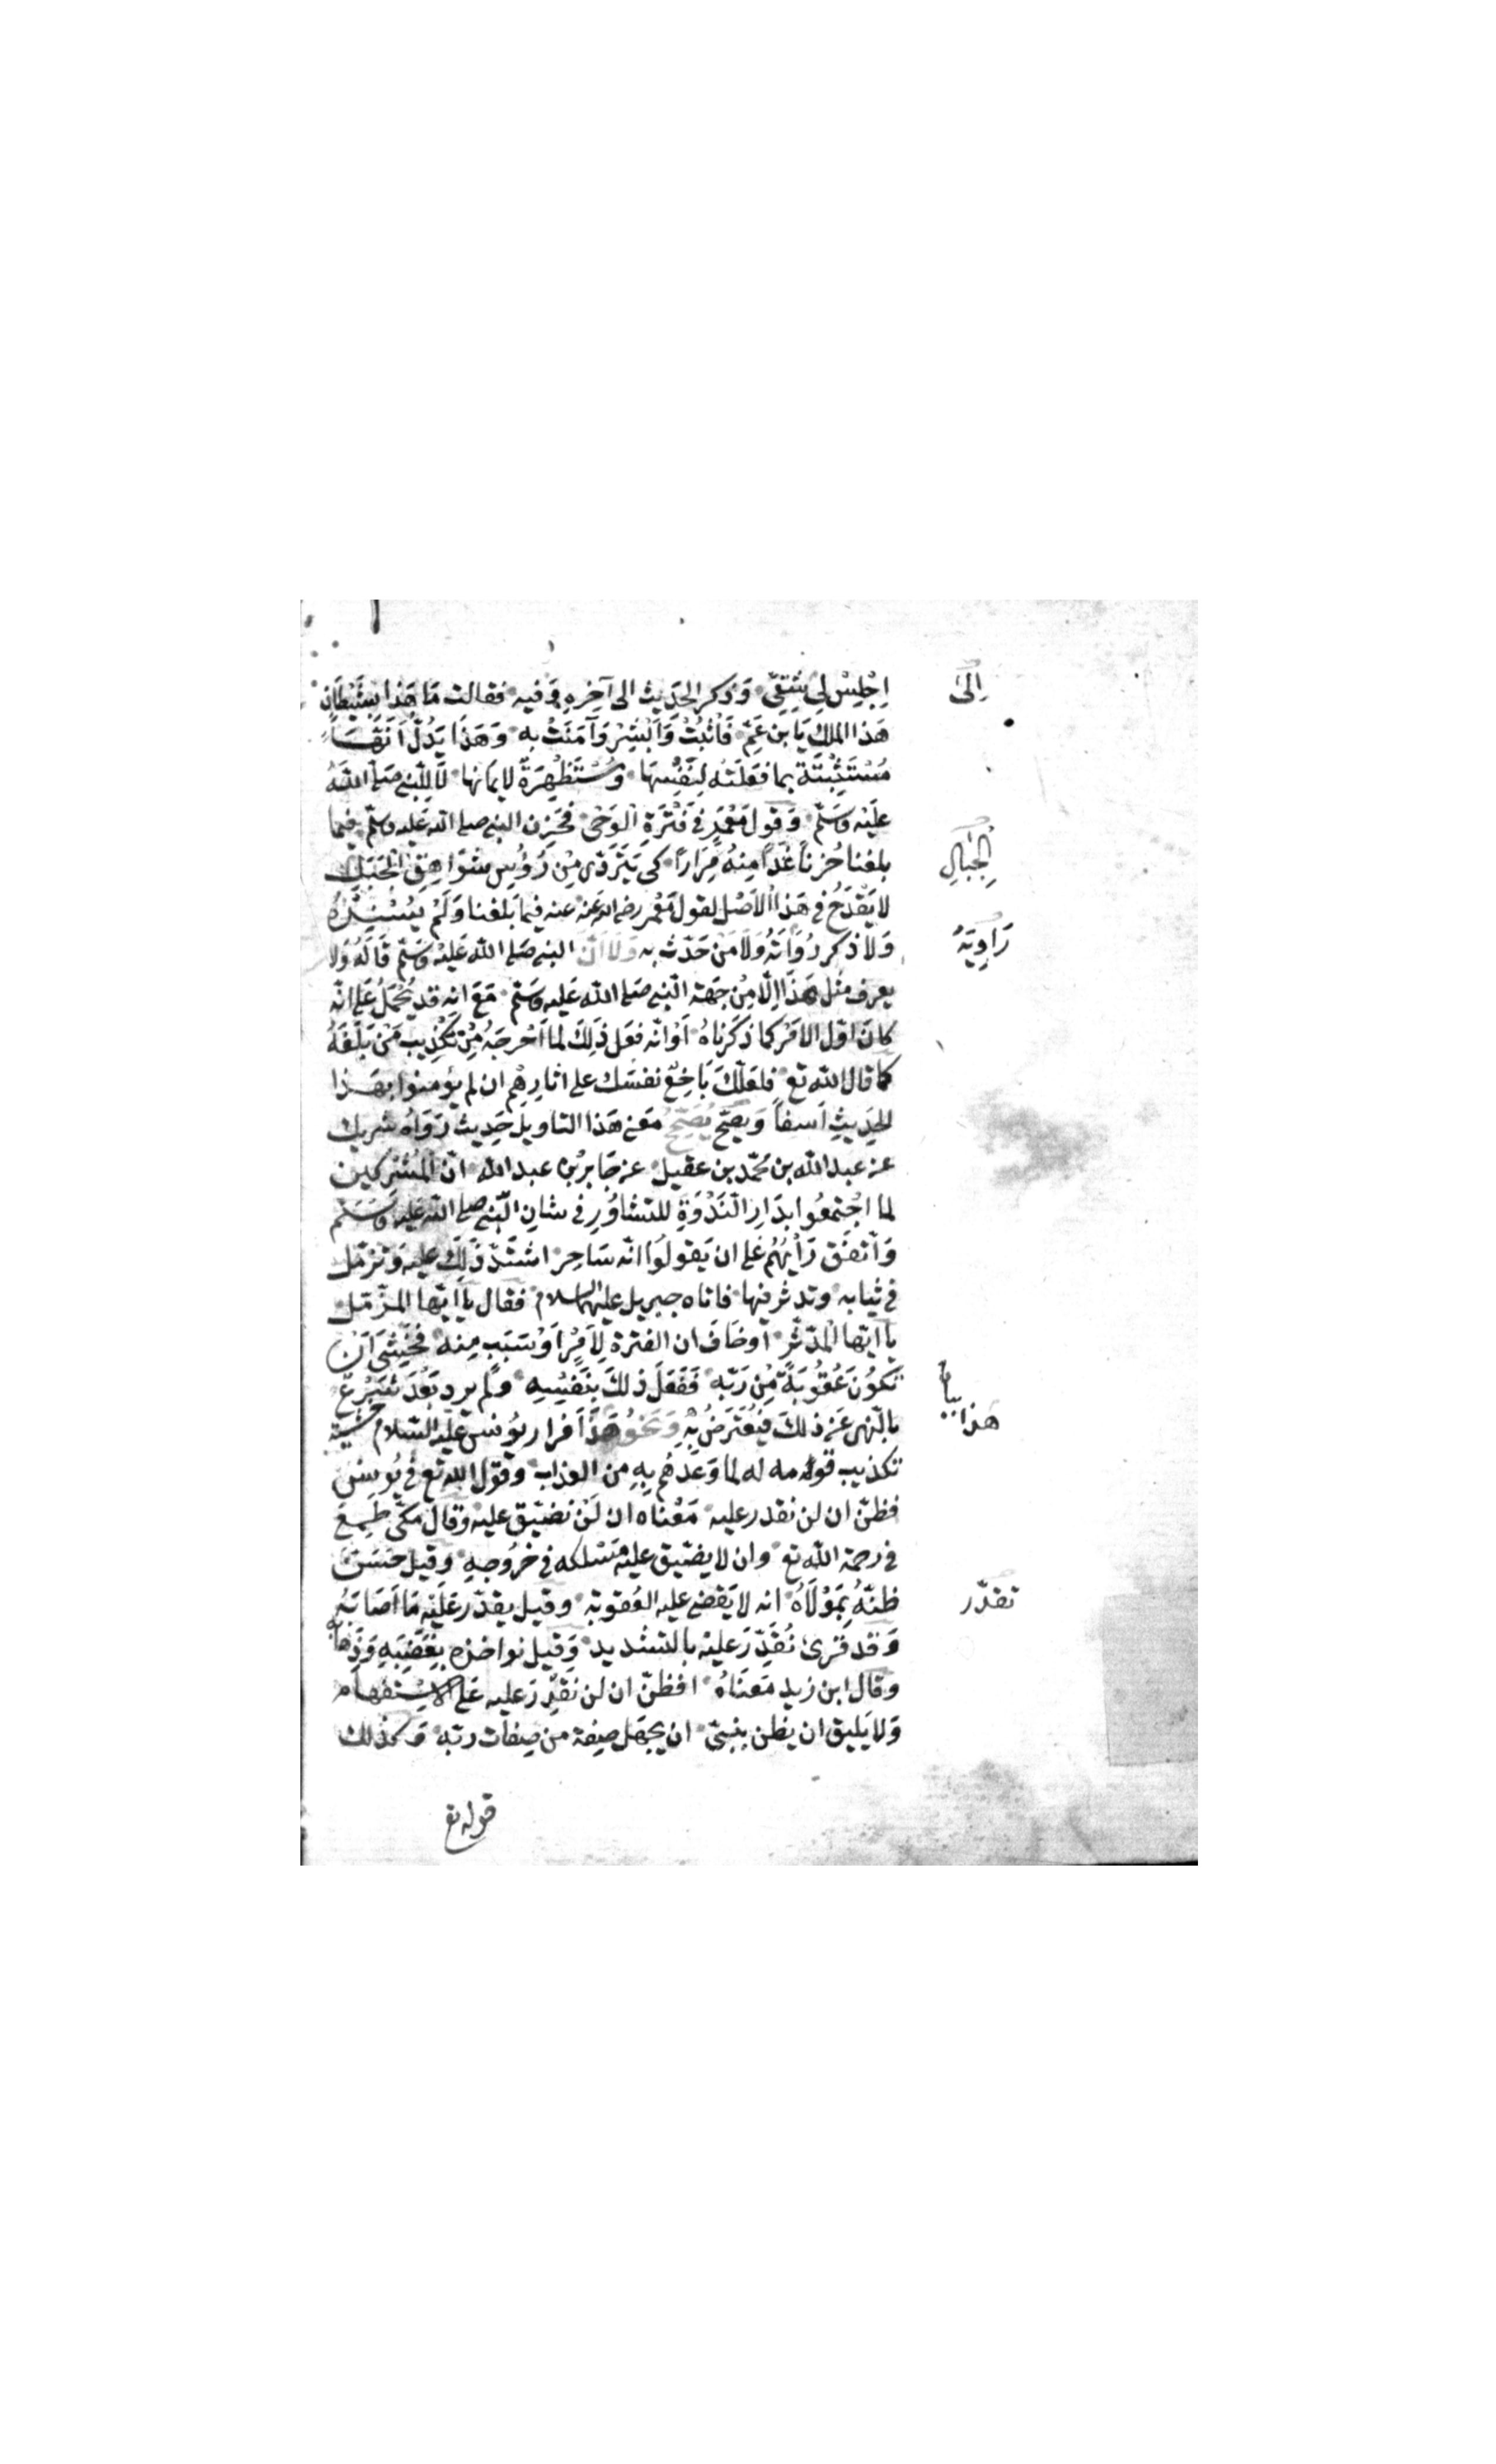 اِجْلِسْ لِى شِقِّى وَذكر الحَدِيث الى آخِرِهِ وَفيه فقالت مَا هَذا بشَيْطَانٍ
إلىٰ
هَذا الملك يَا بن عَمِّ فَاثْبُتْ وَاَبْشِرْ وَآمَنَتْ به وَهَذَا يَدُلّ اَنَّهَا
مُسْتَثْبِتَة بما فعَلَتْه لِنَفْسِهَا وَمُسْتَظْهِرَةٌ لايمَانها لَا للنّبى صَلى اللهُ
عليْه وسَلّم وَقول مَعْمَرٍ فى فَتْرَةِ الْوَحْى فحَزِن النبى صلى الله عليه وسلّم فيما
الْجِبَالِ
بلغنا حُزنًا غَدَا مِنهُ مِرَارًا كى يَتَرَدّى مِنْ رَؤُسِ شَوَاهِقِ الْجَبَلِ
لا يَقْدَحُ فى هَذا الاَصْل لقول مَعْمر رضى الله عنه عنه فيما بلغنا وَلَمْ يُسْنِدْهُ
رَاوِيَهُ
وَلا ذكر رُوَاتَهُ وَلَا مَنْ حَدّث به وَلَا اَنّ النبى صَلى الله عَليْه وسَلّم قَالهُ وَلا
يعرف مثل هَذَا اِلّا مِنْ جهَة النّبى صَلى الله عَليه وسَلّم مَعَ انه قد يُحْمَلُ عَلى انّه
كانَ اوّل الامْر كما ذكَرْناهُ اَوْ انّه فعَل ذلِكَ لما اَحْرجَهُ مِنْ تَكْذِيب مَنْ بَلّغَهُ
كما قال الله تع فلعَلّكَ بَاخِعٌ نفسَك على اثارِهِم ان لم يؤمنوا بهَذا
الحدِيثِ اَسفاً وَيصَحّ يُصَحِّحُ مَعنى هَذا التاويل حَدِيث رَوَاهُ شريك
عن عبد الله بن محمّد بن عقيل عن جَابِرِ بْن عبد الله انّ المُشركين
لما اجْتمعُوا بدَار النّدْوَةِ للتشاوُرِ فى شانِ النّبى صلى الله عليه وَسَلم
وَاتفَق رَأيُهُم عَلى ان يَقولوُا انّه سَاحِر اشتَدّ ذَلِكَ عليه وَتزمّل
فى ثيابه وتدثر فيها فاتاه جبريل عليهما السلام فقال يا ايّها المزّمّل
يا ايّها المدّثّر اَوخَافَ ان الفترة لِاَمْرٍ اَوْ سَبَبٍ مِنه فخَشِىَ اَن
تَكوُنَ عُقوُبَةً مِنْ رَبّه فَفَعَلَ ذلكَ بنَفْسِهِ وَلم يرد بَعْدَ شَرْعٌ
هَذا بيان
بالنّهى عَن ذلكَ فيُعْتَرَضُ بِهِ وَنَحْوُ هَذَا فرار يوُنس عليه السّلام خشية
تكذيب قوْمه له لما وَعَدَهُم بِهِ من العذاب وقوْل الله تع فى يوُنس
فظنّ ان لن نقدر عليه مَعْناه ان لَنْ نضيّق عليه وَقال مكّى طمِعَ
فى رحمة الله تع وان لا يضيّق عليْه مَسْلكه فى خرُوجِهِ وقيل حَسّن
ظنّهُ بمَوْلَاهُ انه لا يَقضى عليه العُقوبة وقيل يقدّر عَليْه مَا اَصَابَهُ
تقدّر
وَقد قرئ نُقَدِّرَ عليْه بالتشديد وَقيل نواخذه بِغَضَبِهِ وَذهَابه
وقال ابن زيد مَعناهُ افظنّ ان لن نَقْدِرَ عليه عَلى الاسْتفهام
وَلا يَليق ان يظن بنبىّ ان يجهَل صِفة من صِفات ربّه وَكذلك
قوله تع